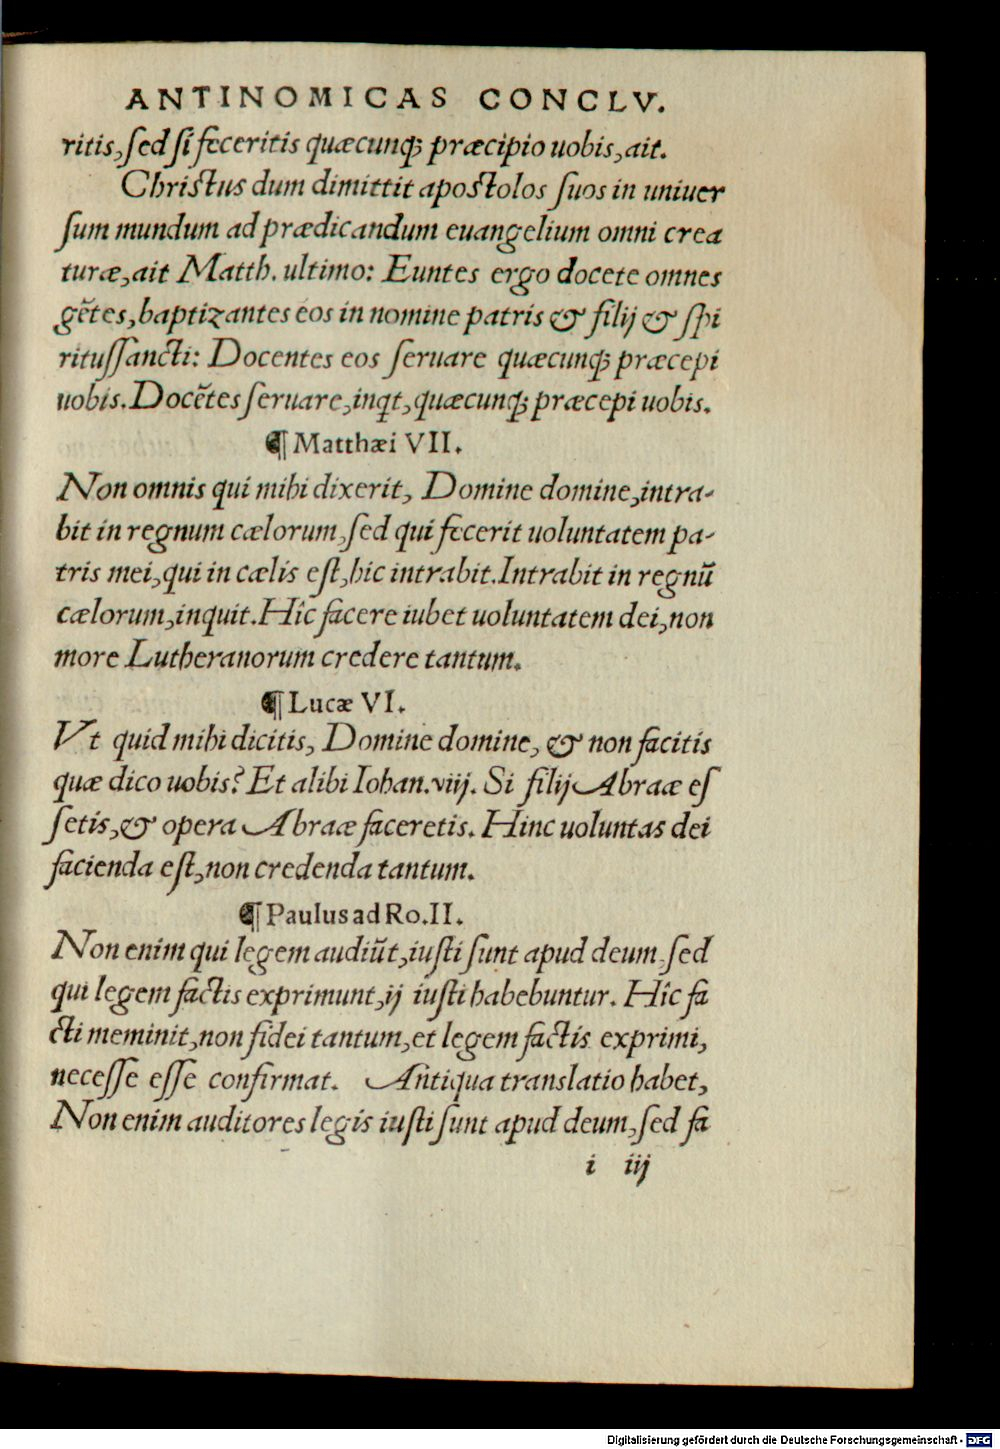 ANTINOMICAS CONCLV.
ritis, sed si feceritis quæcunq; præcipio uobis, ait.
Christus dum dimittit apostolos suos in uniuer
sum mundum ad prædicandum euangelium omni crea
turæ, ait Matth. ultimo: Euntes ergo docete omnes
gẽtes, baptizantes eos in nomine patris & filij & spi
ritussancti: Docentes eos seruare quæcunq; præcepi
uobis. Docẽtes seruare, inqt, quæcunq; præcepi uobis.
¶ Matthæi VII.
Non omnis qui mihi dixerit, Domine domine, intra-
bit in regnum cælorum, sed qui fecerit uoluntatem pa-
tris mei, qui in cælis est, hic intrabit. Intrabit in regnũ
cælorum, inquit. Hîc facere iubet uoluntatem dei, non
more Lutheranorum credere tantum.
¶ Lucæ VI.
Vt quid mihi dicitis, Domine domine, & non facitis
quæ dico uobis? Et alibi Iohan. viij. Si filij Abraæ es
setis, & opera Abraæ faceretis. Hinc uoluntas dei
facienda est, non credenda tantum.
¶ Paulus ad Ro. II.
Non enim qui legem audiũt, iusti sunt apud deum, sed
qui legem factis exprimunt, ij iusti habebuntur. Hîc fa
cti meminit, non fidei tantum, et legem factis exprimi,
necesse esse confirmat. Antiqua translatio habet,
Non enim auditores legis iusti sunt apud deum, sed fa
i iij
Digitalisierung gefördert durch die Deutsche Forschungsgemeinschaft - DFG